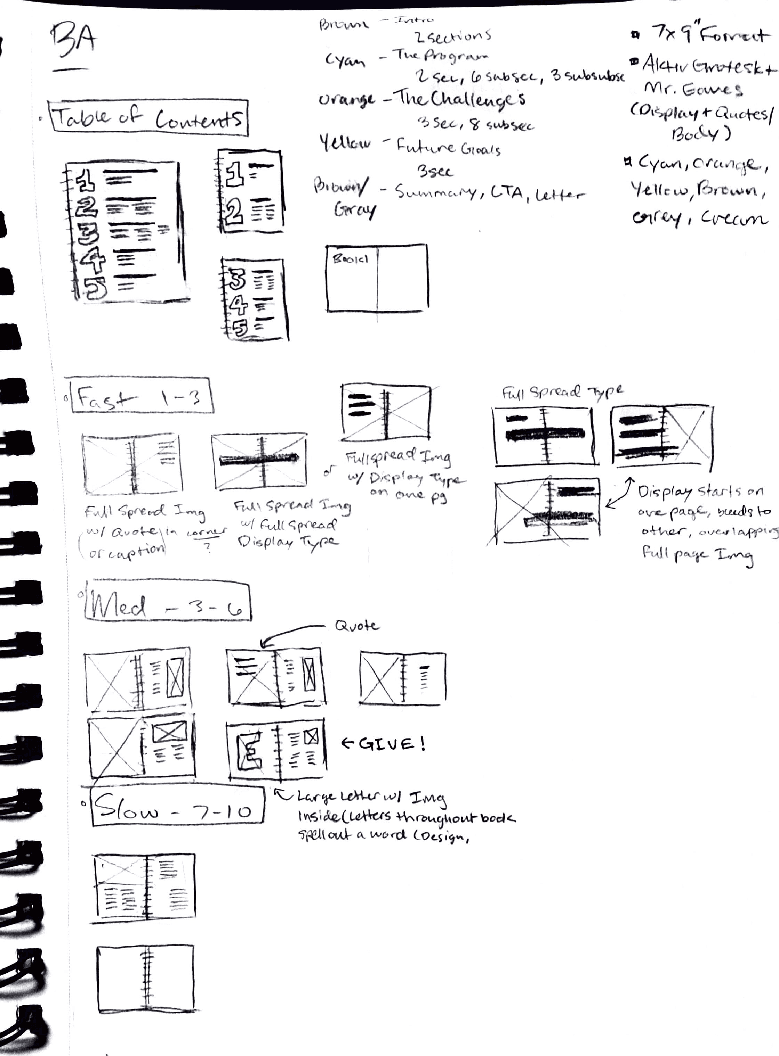 BA
Brown - Intro
2 sections
Cyan - The Program
2 sec, 6 subsec, 3 subsubsec
Orange - The Challenges
3 sec, 8 subsec
Yellow - Future Goals
3 sec
Brown/ - Summary, CTA, Letter
Gray
7x9" Format
Aktiv Grotesk +
Mr. Eaves
(Display + Quotes/
Body)
Cyan, Orange,
Yellow, Brown,
Grey, Cream
Table of Contents
1
2
3
4
5
1
2
3
4
5
Fast 1-3
Full Spread Img
w/ Quote in corner
(or caption) ?
Full Spread Img
w/ Full Spread
Display Type
or
Full spread Img
w/ Display Type
on one pg
Full Spread Type
Display starts on
one page, bleeds to
other, overlapping
Full page Img
Med - 3-6
Quote
E
← GIVE!
Large Letter w/ Img
Inside (Letters throughout book
spell out a word (Design,
Slow - 7-10